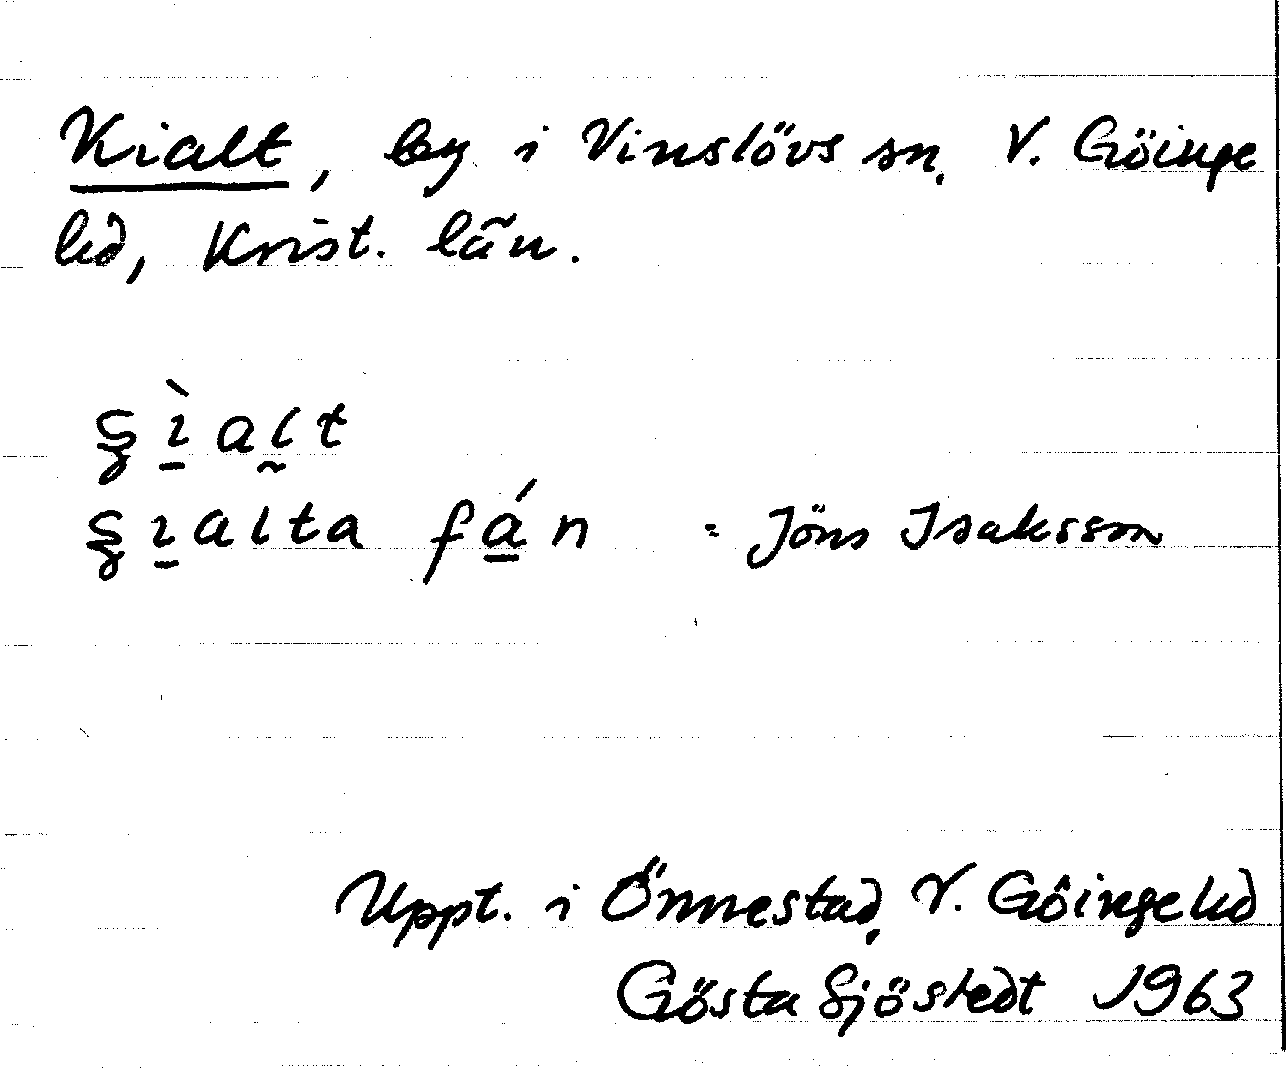 Kialt, by i Vinslövs sn, V. Göinge
hd, Krist. län.
ʂì̠al̰t
ʂı̠alta fá̠n = Jöns Isaksson
Uppt. i Önnestad, V. Göinge hd
Gösta Sjöstedt 1963